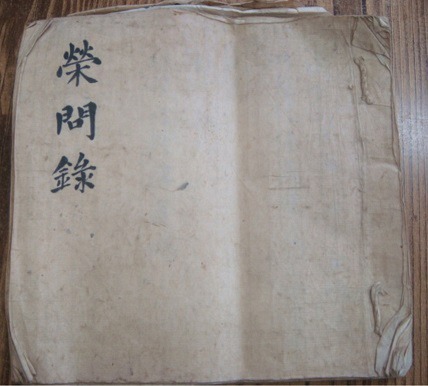 榮問錄